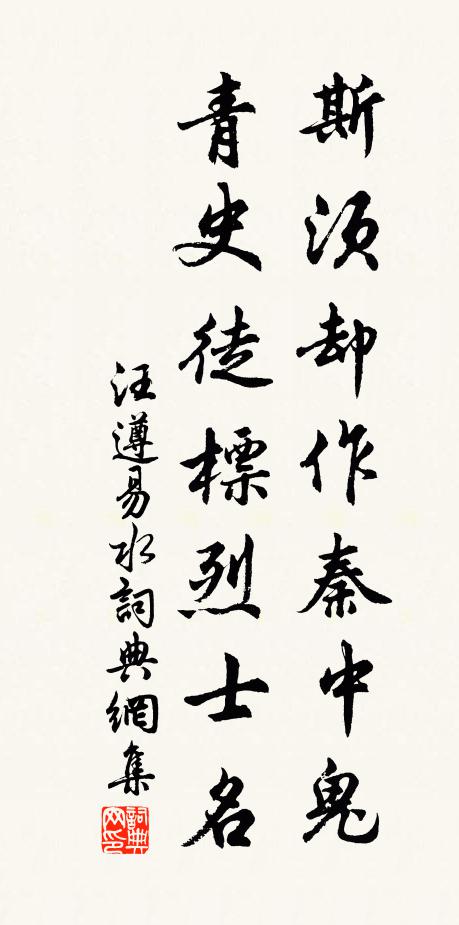 斯須却作秦中鬼
青史徒標烈士名
汪遵易水詞典網集
詞典网印